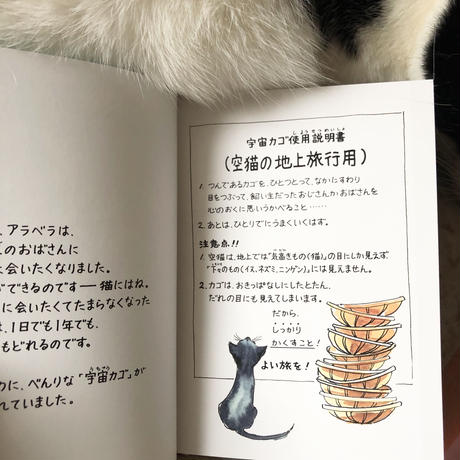 、アラベラは、
のおばさんに
と会いたくなりました。
ができるのです──猫にはね。
に会いたくてたまらなくなった
は、1日でも1年でも、
もどれるのです。
に、べんりな「宇宙カゴ」が
れていました。
宇宙カゴ使用説明書
(空猫の地上旅行用)
1. つんであるカゴを、ひとつとって、なかにすわり
目をつぶって、飼い主だったおじさんかおばさんを
心のおくに思いうかべること……
2. あとは、ひとりでにうまくいくはず。
注意点!!
1. 空猫は、地上では「気高きもの(猫)」の目にしか見えず、
「下々のもの(イヌ、ネズミ、ニンゲン)」には見えません。
2. カゴは、おきっぱなしにしたとたん、
だれの目にも見えてしまいます。
だから、
しっかり
かくすこと!
よい旅を!